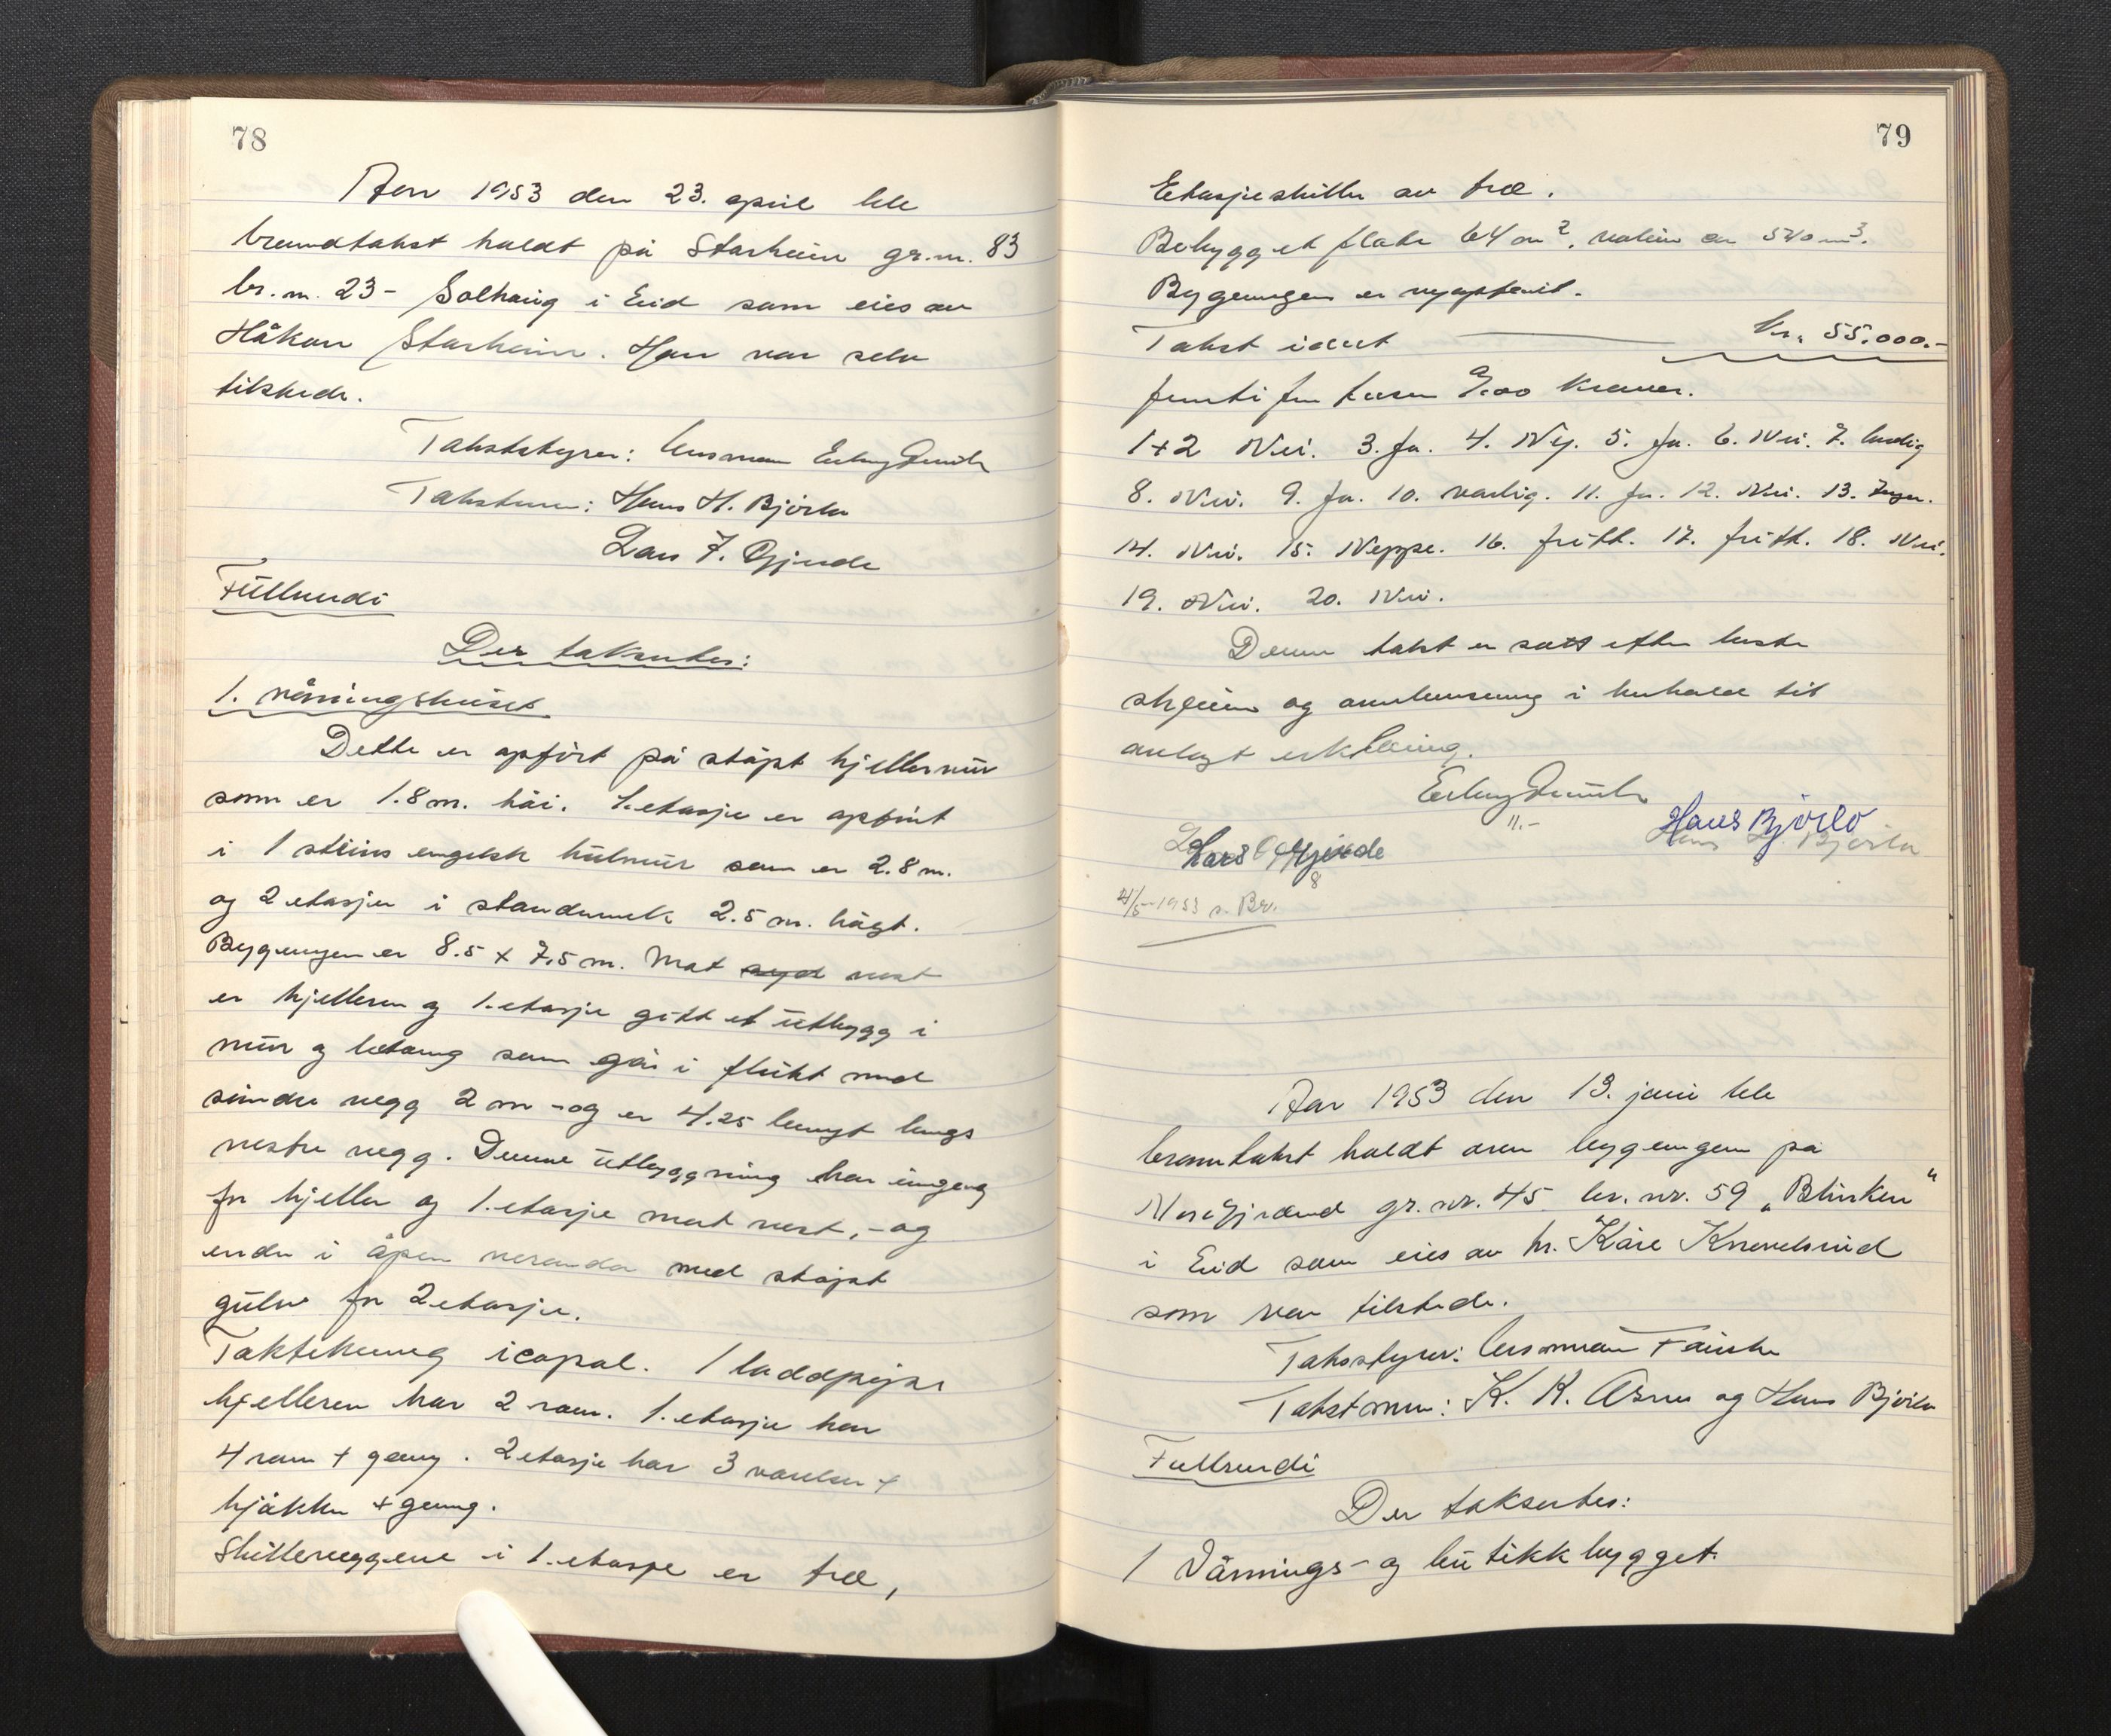 78
Aar 1953 den 23. april ble
branndtakst holdt på Starheim gr.nr. 83
br.nr. 23 - Solhaug i Eid som eies av
Håkon Starheim. Han var selv
tilstede.
Takststyrer: lensmann Erling
Takstmenn: Hans H. Bjørlo
Lars F. Gjerde
Füllmendi
Der taksertes:
1. våningshuset
Dette er opført på støpt kjellermur
som er 1.8 m. høi. 1. etasje er opført
i 1 steins engelsk hulmur som er 2.8 m.
og 2 etasjer i standverk 2.5 m. høgt.
Bygningen er 8.5 x 7,5 m. Mot syd vest
er kjelleren og 1. etasje gitt et utbygg i
mur og betong som går i flukt med
søndre vegg 2 m - og er 4.25 lengt langs
vestre vegg. Denne utbyggning har inngang
for kjeller og 1. etasje mot vest, - og
ender i åpen veranda med støpt
gulv for 2 etasje.
Taktekning icopal. 1 luddpipe
kjelleren har 2 rom. 1. etasje har
4 rom + gang. 2 etasje har 3 værelser +
kjøkken + gang.
Skilleveggene i 1. etasje er træ,
79
Etasjeskiller av træ.
Bebygget flate 64 m², volum er 540 m³.
Bygningen er nyoppført.
Takst idert kr. 55.000.-
femti fem tusen 0/00 kroner.
1+2 Nei. 3. Ja. 4. Nei. 5. Ja. 6. Nei. 7. lovlig
8. Nei. 9. Ja. 10. vanlig. 11. Ja. 12. Nei. 13. Ingen.
14. Nei. 15. Neppe. 16. fritt. 17. fritt. 18. Nei.
19. Nei. 20. Nei.
Denne takst er satt efter beste
skjønn og overbevisning i henhold til
avlagt erklæring.
Erling
11.-
Hans Bjørlo
Hans H. Bjørlo
Lars Gjerde
8
4/5-1953 s. Br.
Aar 1953 den 13. juni ble
branntakst holdt over bygningen på
Nordfjordeid gr. nr. 45 br. nr. 59 „Blinken"
i Eid som eies av hr. Kåre Knevelsrud
som var tilstede.
Takststyrer: lensmann
Takstmenn: K. K. Aarnes og Hans Bjørlo
Fullmendi
Der taksertes:
1 Vånings- og butikkbygget.